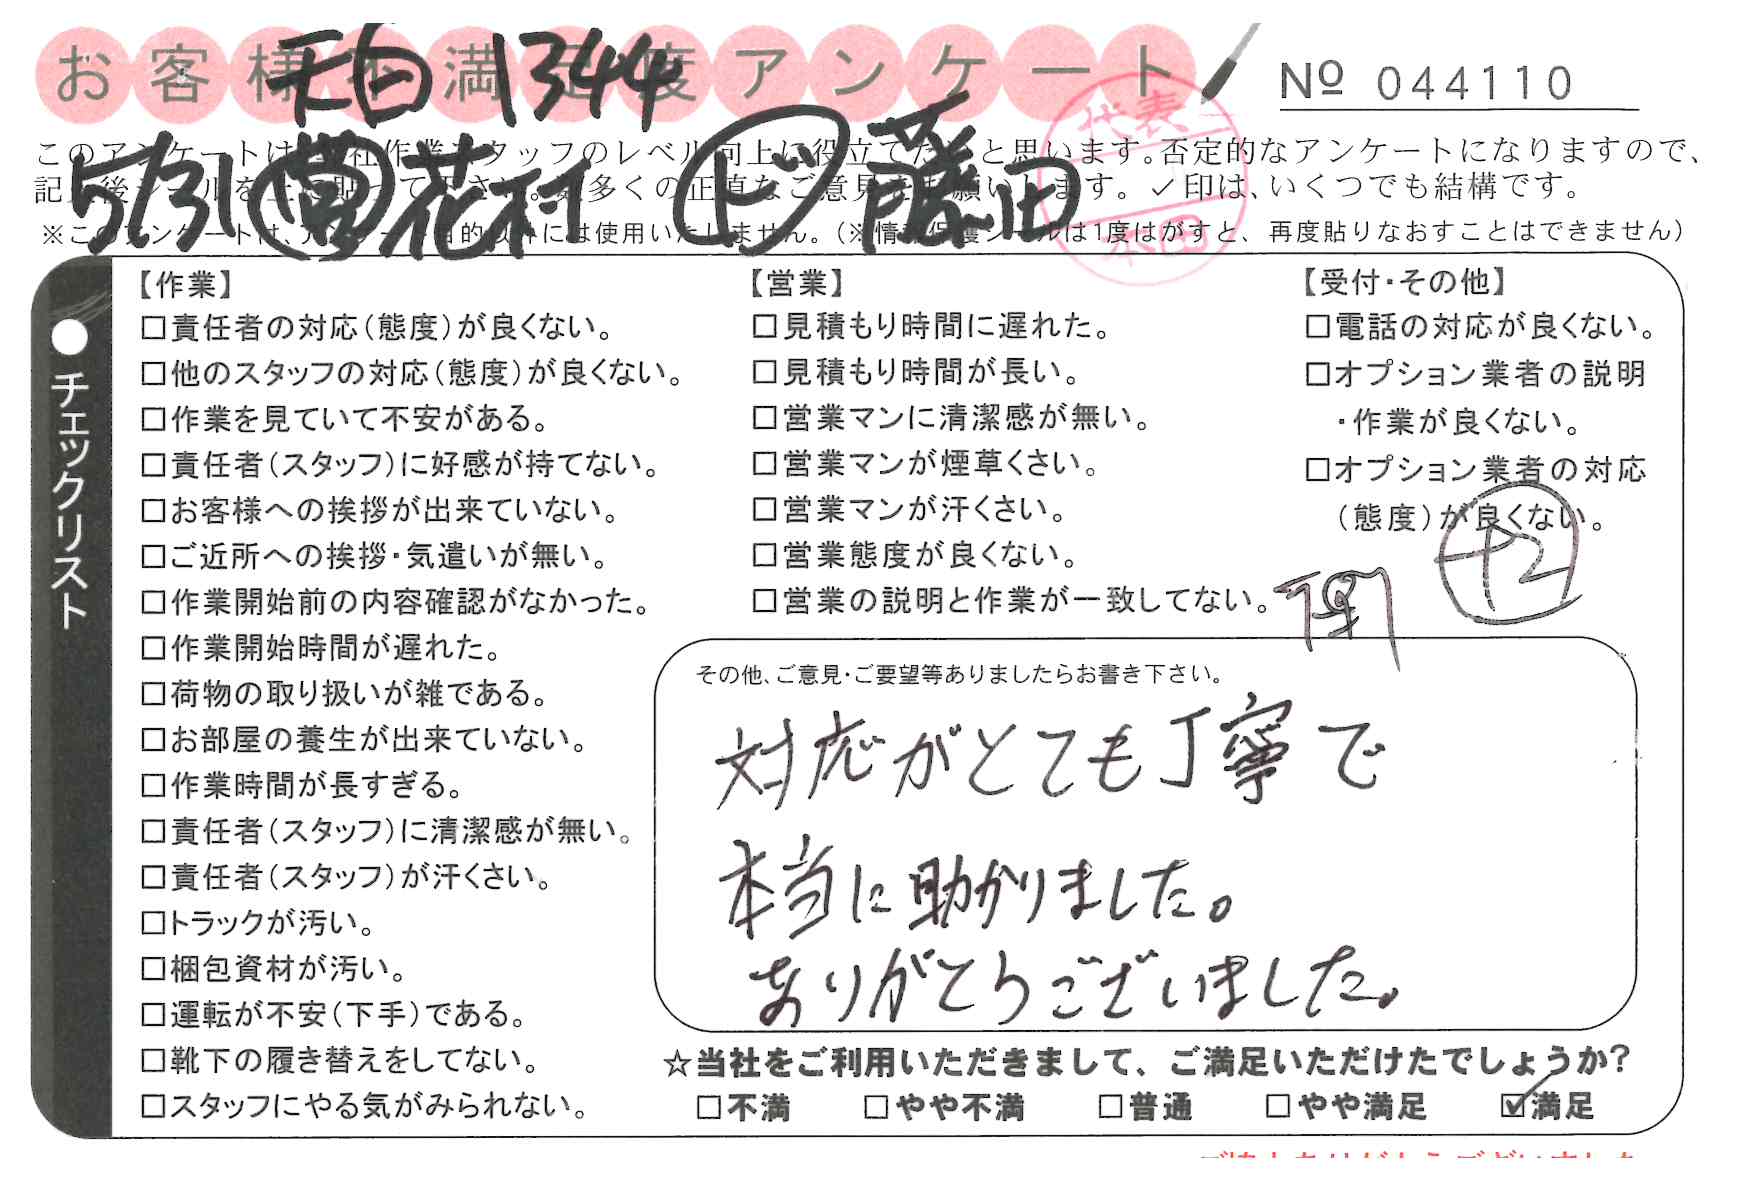 お客様不満足度アンケート
天白1344
№ 044110
このアンケートは、当社作業スタッフのレベル向上に役立てたいと思います。否定的なアンケートになりますので、
記入後シールを上に貼って下さい。数多くの正直なご意見をお願いします。✓印は、いくつでも結構です。
※このアンケートは、アンケート目的以外には使用いたしません。(※情報保護シールは1度はがすと、再度貼りなおすことはできません)
5/31 営 花村 ド 藤田
代表
本田
●チェックリスト
【作業】
□責任者の対応(態度)が良くない。
□他のスタッフの対応(態度)が良くない。
□作業を見ていて不安がある。
□責任者(スタッフ)に好感が持てない。
□お客様への挨拶が出来ていない。
□ご近所への挨拶・気遣いが無い。
□作業開始前の内容確認がなかった。
□作業開始時間が遅れた。
□荷物の取り扱いが雑である。
□お部屋の養生が出来ていない。
□作業時間が長すぎる。
□責任者(スタッフ)に清潔感が無い。
□責任者(スタッフ)が汗くさい。
□トラックが汚い。
□梱包資材が汚い。
□運転が不安(下手)である。
□靴下の履き替えをしてない。
□スタッフにやる気がみられない。
【営業】
□見積もり時間に遅れた。
□見積もり時間が長い。
□営業マンに清潔感が無い。
□営業マンが煙草くさい。
□営業マンが汗くさい。
□営業態度が良くない。
□営業の説明と作業が一致してない。
【受付・その他】
□電話の対応が良くない。
□オプション業者の説明
・作業が良くない。
□オプション業者の対応
(態度)が良くない。
+2
その他、ご意見・ご要望等ありましたらお書き下さい。
対応がとても丁寧で
本当に助かりました。
ありがとうございました。
☆当社をご利用いただきまして、ご満足いただけたでしょうか?
□不満 □やや不満 □普通 □やや満足 ☑満足